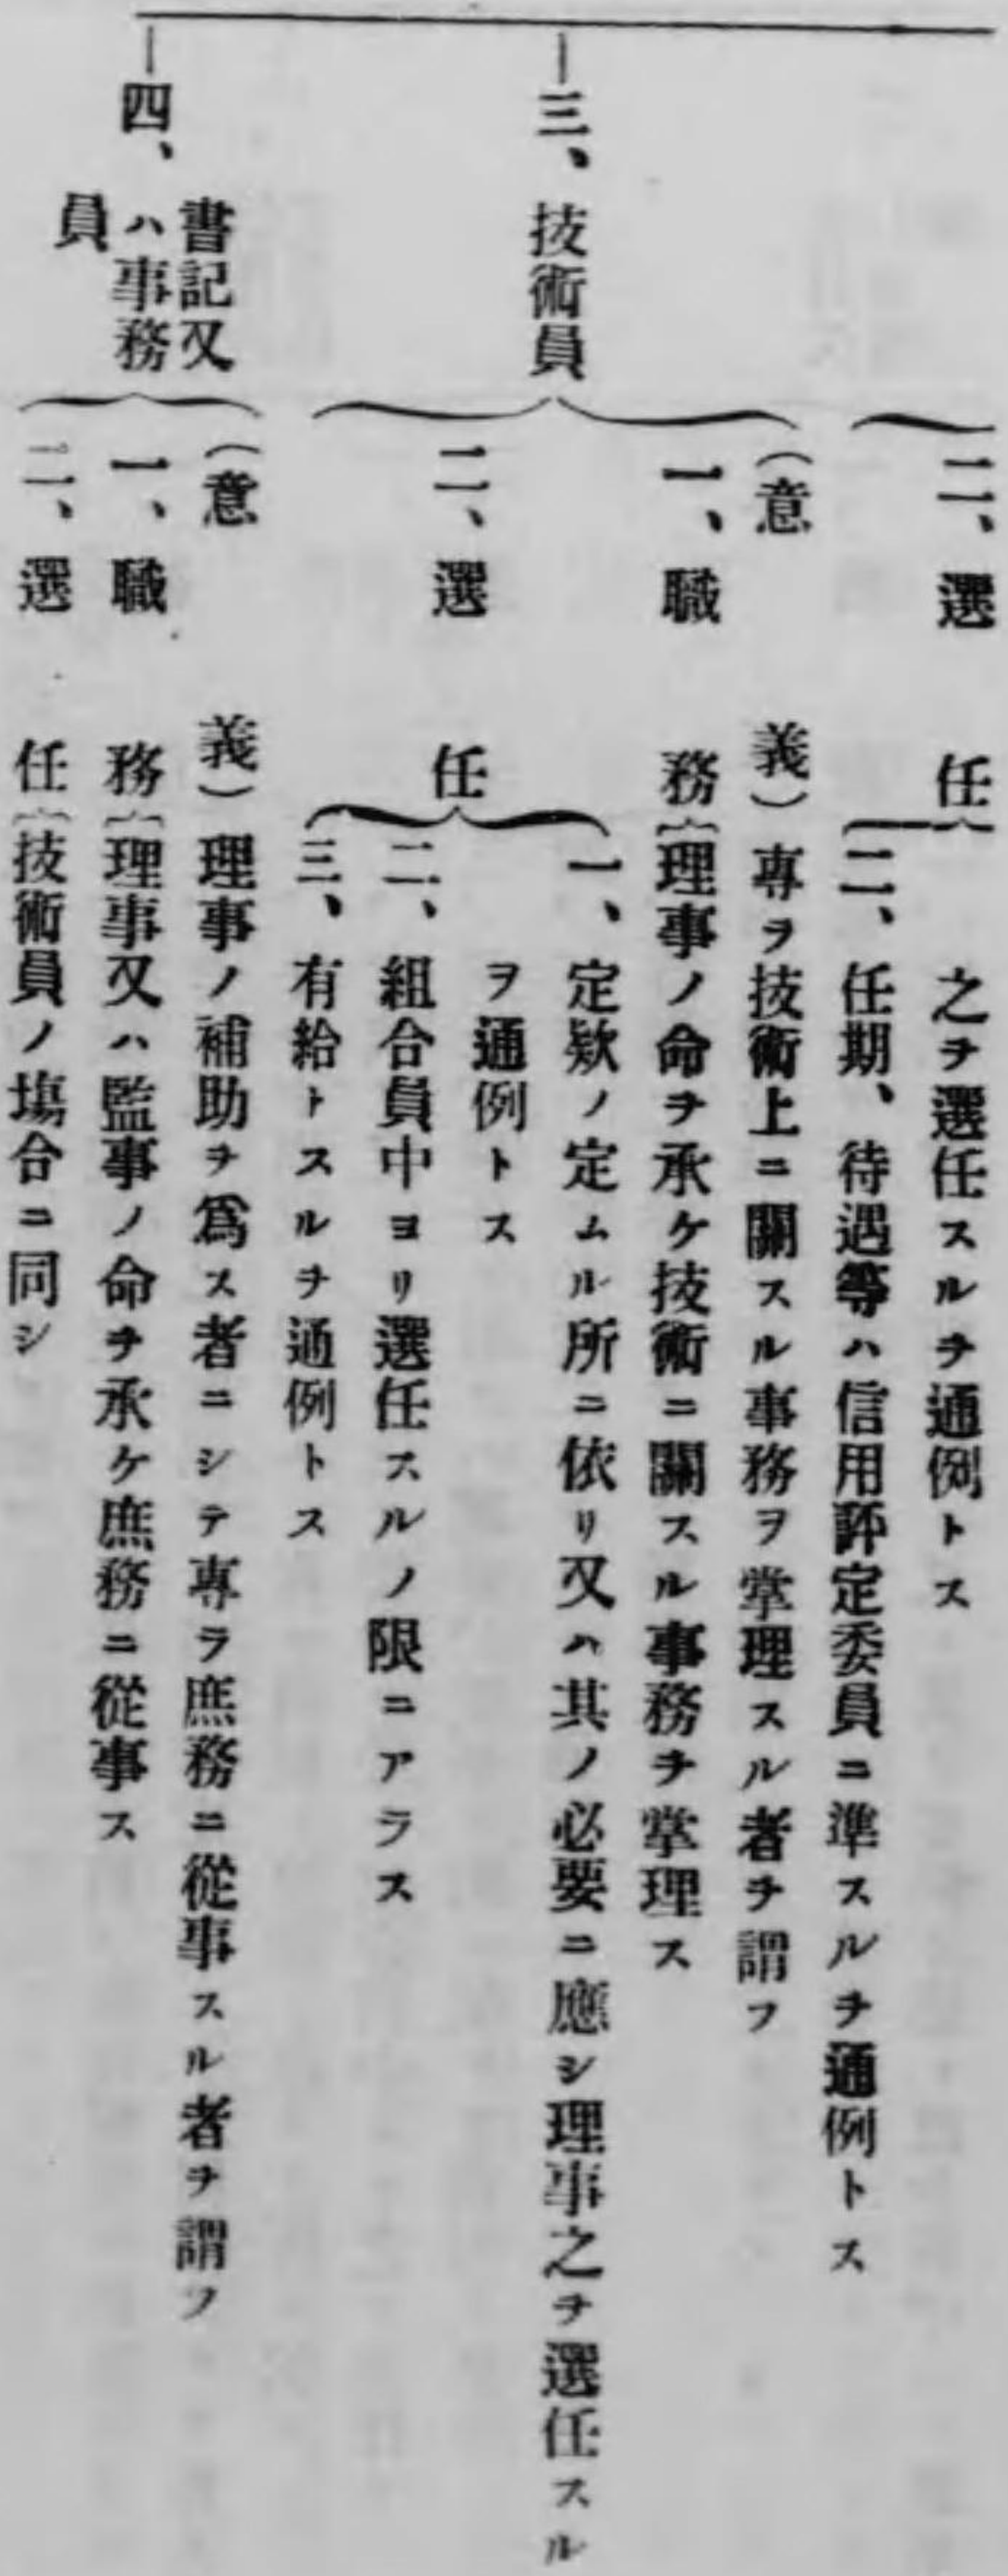 二、選任
之ヲ選任スルヲ通例トス
二、任期、待遇等ハ信用評定委員ニ準スルヲ通例トス
三、技術員
(意義)專ラ技術上ニ關スル事務ヲ掌理スル者ヲ謂フ
一、職務 理事ノ命ヲ承ケ技術ニ關スル事務ヲ掌理ス
二、選任
一、定欵ノ定ムル所ニ依リ又ハ其ノ必要ニ應シ理事之ヲ選任スル
ヲ通例トス
二、組合員中ヨリ選任スルノ限ニアラス
三、有給トスルヲ通例トス
四、書記又
ハ事務
員
(意義)理事ノ補助ヲ爲ス者ニシテ專ラ庶務ニ從事スル者ヲ謂フ
一、職務 理事又ハ監事ノ命ヲ承ケ庶務ニ從事ス
二、選任 技術員ノ塲合ニ同シ